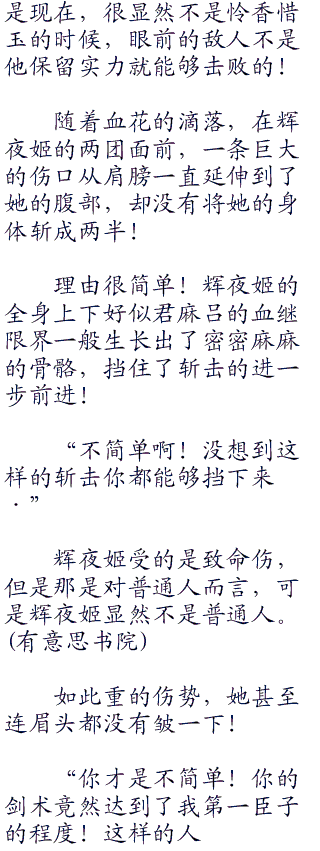 是现在，很显然不是怜香惜
玉的时候，眼前的敌人不是
他保留实力就能够击败的！
随着血花的滴落，在辉
夜姬的两团面前，一条巨大
的伤口从肩膀一直延伸到了
她的腹部，却没有将她的身
体斩成两半！
理由很简单！辉夜姬的
全身上下好似君麻吕的血继
限界一般生长出了密密麻麻
的骨骼，挡住了斩击的进一
步前进！
“不简单啊！没想到这
样的斩击你都能够挡下来
·”
辉夜姬受的是致命伤，
但是那是对普通人而言，可
是辉夜姬显然不是普通人。
(有意思书院)
如此重的伤势，她甚至
连眉头都没有皱一下！
“你才是不简单！你的
剑术竟然达到了我第一臣子
的程度！这样的人